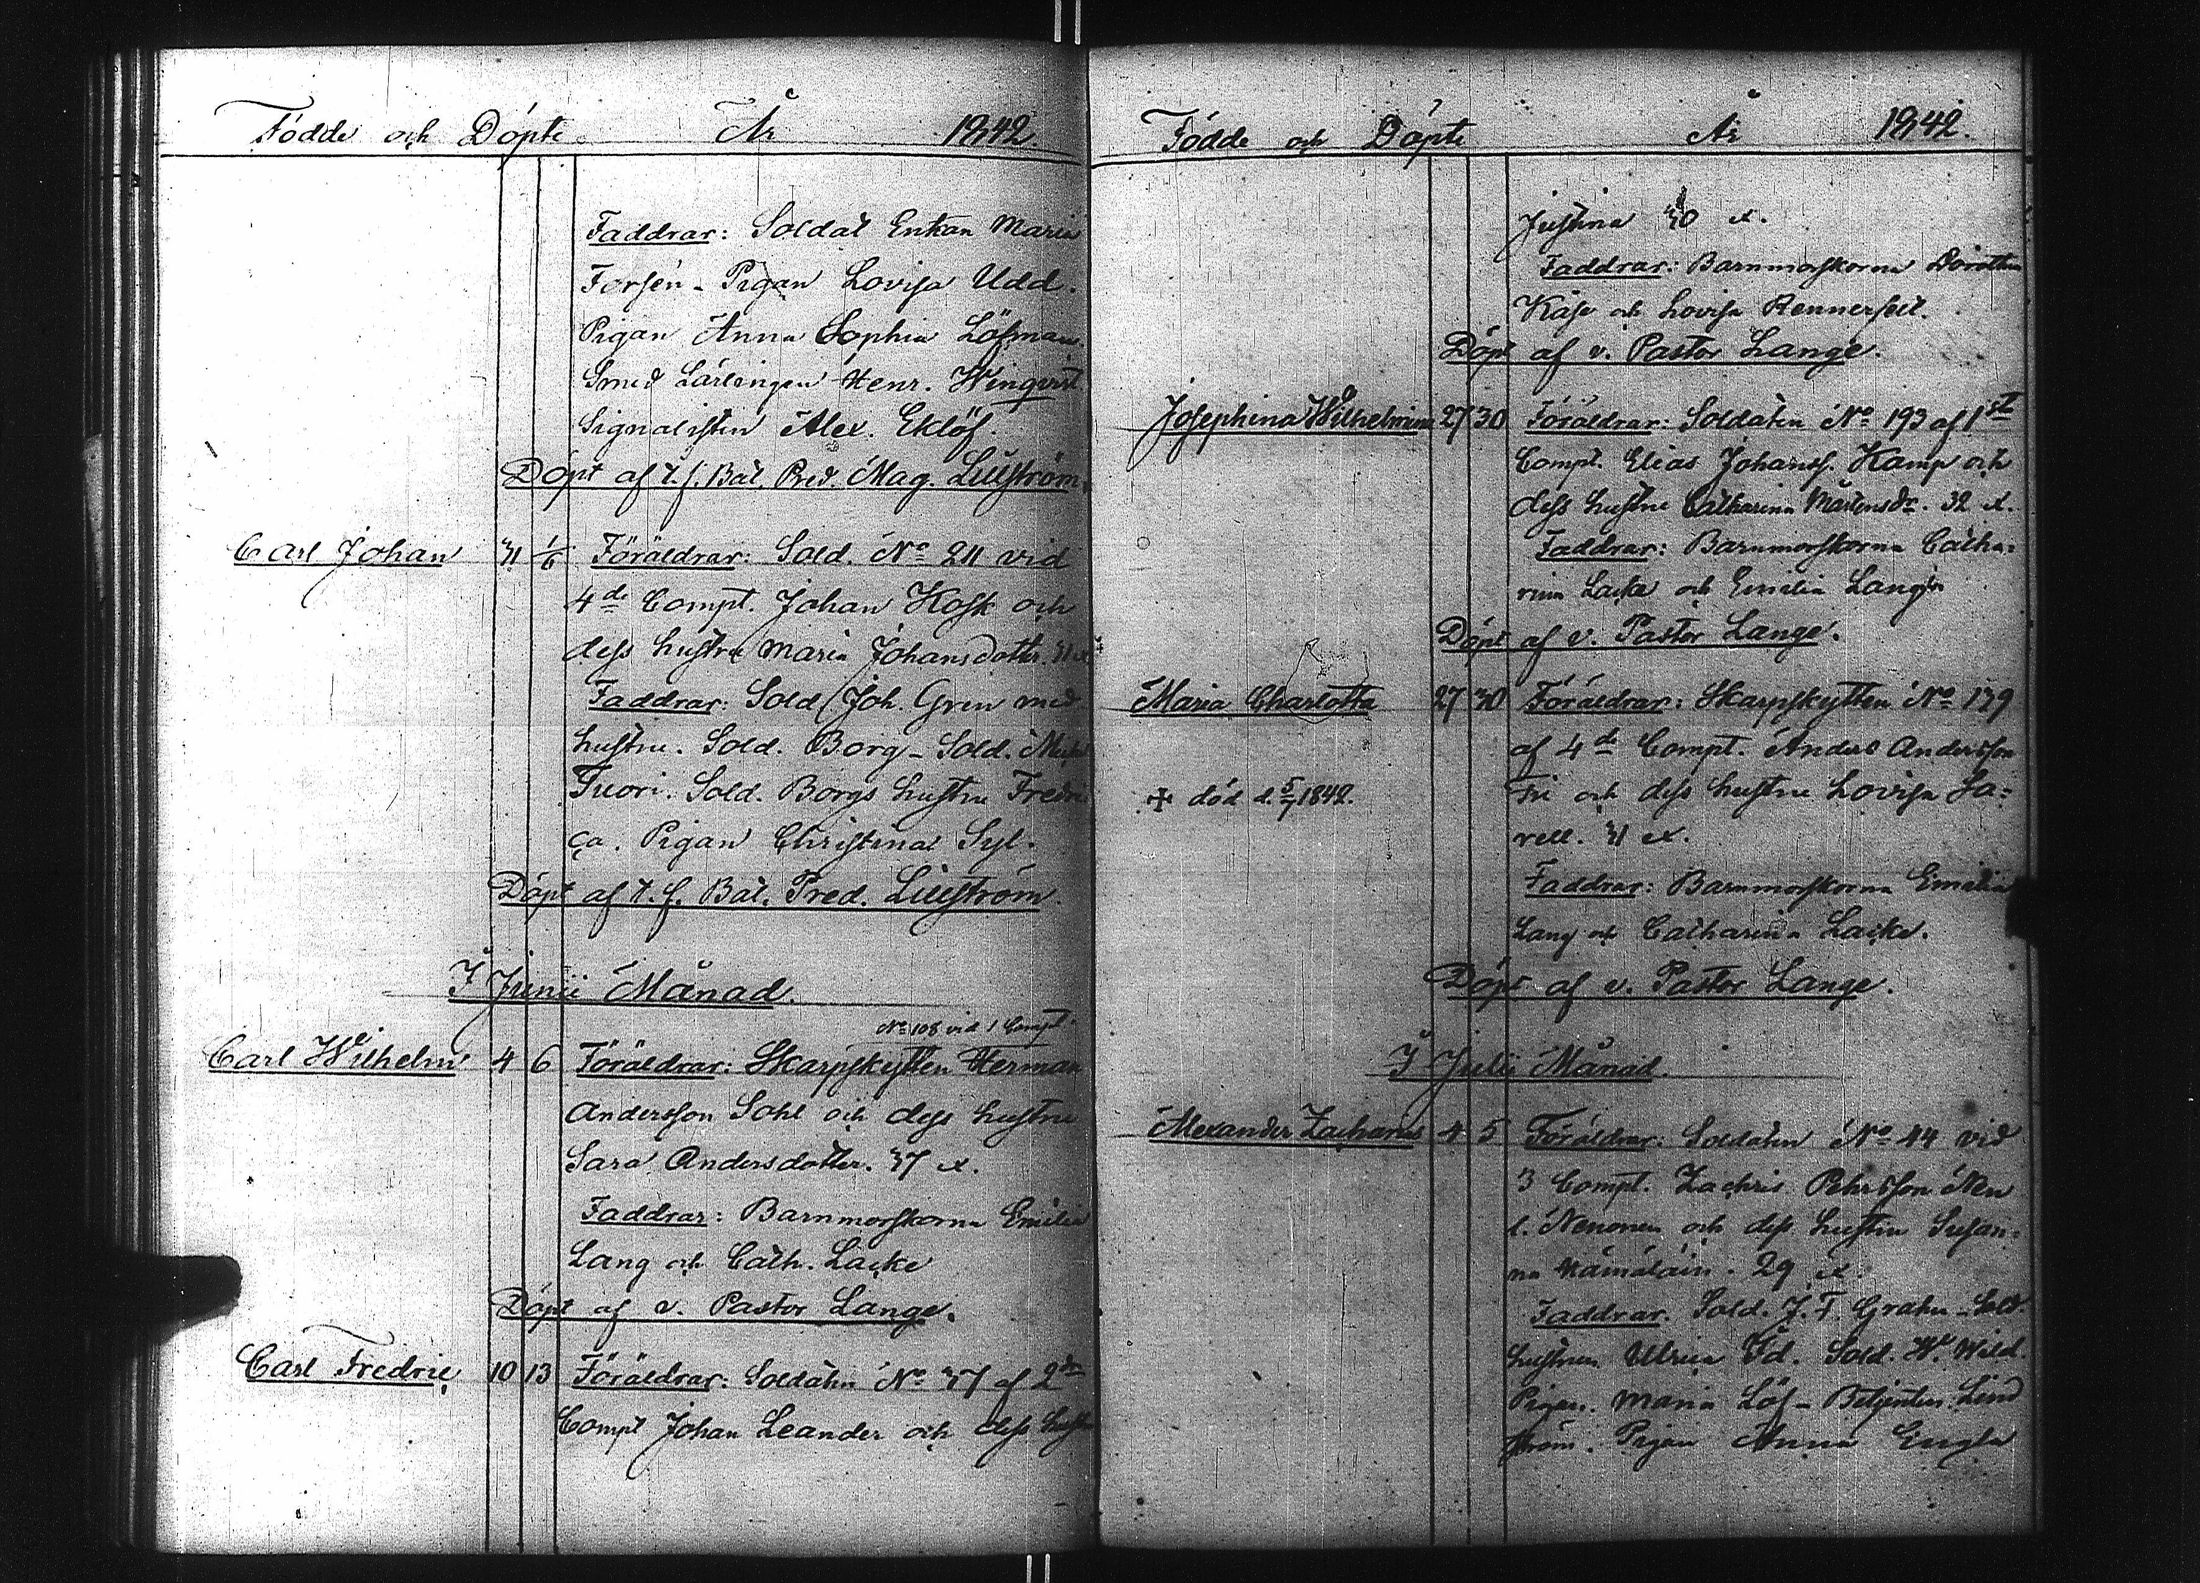 Födde och Döpte År 1842.
Faddrar: Soldat Enkan Maria
Forsén - Pigan Lovisa Udd.
Pigan Anna Sophia Löfman
Smed Lärlingen Henr. Winqvist
Signalisten Alex. Eklöf.
Döpt af t. f. Bat. Pred. Mag. Lilljström.
Carl Johan 31 1/6 Föräldrar: Sold. No 211 vid
4de Compt. Johan Kosk och
dess hustru Maria Johansdotter. 31 å.
Faddrar: Sold. Joh. Gren med
hustru. Sold. Borg - Sold.
Tuori. Sold. Borgs hustru Fredri
ca. Pigan Christina Syl.
Döpt af t. f. Bat. Pred. Lilljström.
I Junii Månad.
No 108 vid 1 Compt.
Carl Wilhelm 4 6 Föräldrar: Skarpskytten Herman
Andersson Sohl och dess hustru
Sara Andersdotter. 37 å.
Faddrar: Barnmorskorna Emilia
Lang och Cath. Lacke
Döpt af v. Pastor Lange.
Carl Fredric 10 13 Föräldrar: Soldaten No 37 af 2dra
Compt Johan Leander och dess hustru
Födde och Döpte År 1842.
Justina 30 å.
Faddrar: Barnmorskorna Dorothea
Kåse och Lovisa Rennerfelt.
Döpt af v. Pastor Lange.
Josephina Wilhelmina 27 30 Föräldrar: Soldaten No 193 af 1sta
Compt. Elias Johanss. Kamp och
dess hustru Catharina Mårtensdr. 32 å.
Faddrar: Barnmorskorna Catha=
rina Lacke och Emilia Lang
Döpt af v. Pastor Lange.
Maria Charlotta 27 30 Föräldrar: Skarpskytten No 139
af 4de Compt. Anders Andersson
Fri och dess hustru Lovisa Sa=
rell. 31 å.
† död d. 5/7 1842.
Faddrar: Barnmorskorna Emilia
Lang och Catharina Lacke.
Döpt af v. Pastor Lange.
I Julii Månad.
Alexander Zacharias 4 5 Föräldrar: Soldaten No 44 vid
3 Compt. Zachris Pehrsson Nen
l. Nenonen och dess hustru Susan=
na Hämäläin. 29 å.
Faddrar. Sold. J. F. Grahn - Sold.
hustrun Ulrica Ed. Sold. W. Wild.
Pigan. Maria Löf - Betjenten Lind
ström. Pigan Anna Engla